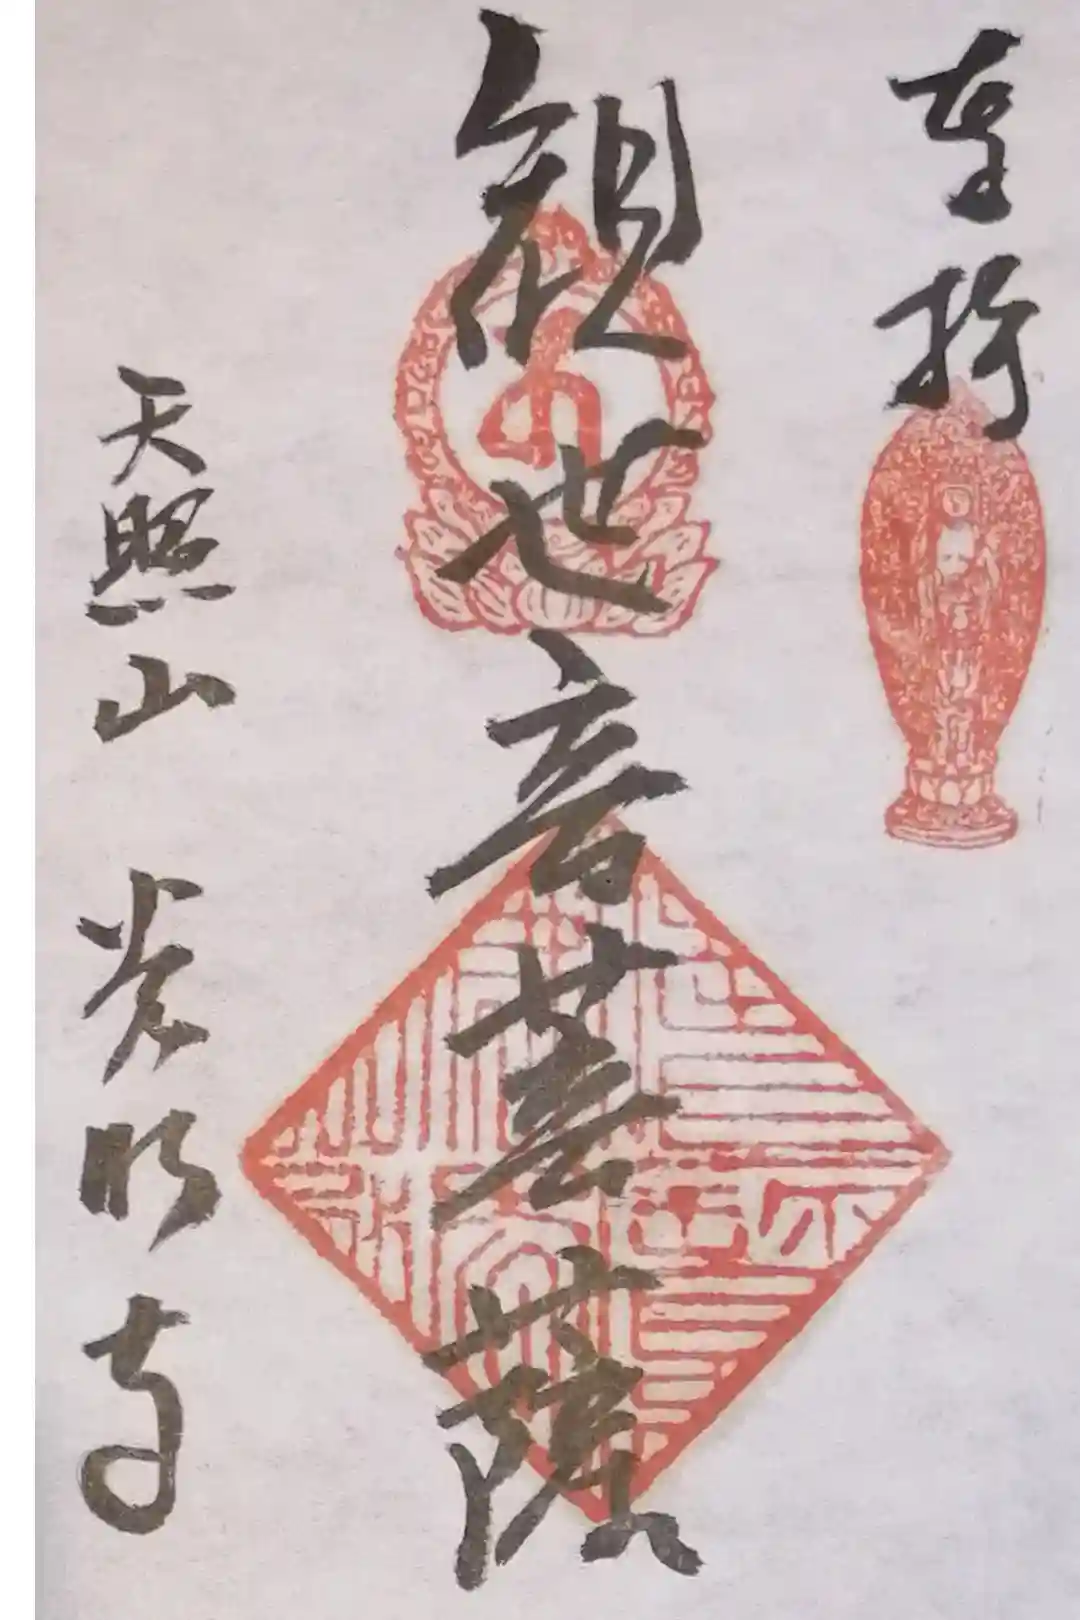 奉拝
観世音菩薩
天照山 光明寺